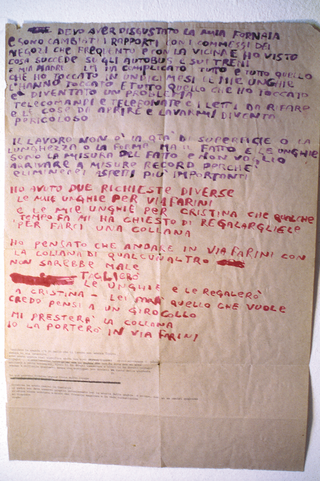 DEVO AVER DISGUSTATO LA MIA FORNAIA
E SONO CAMBIATI I RAPPORTI CON I COMMESSI DEI
NEGOZI CHE FREQUENTO E CON LA VICINA E HO VISTO
COSA SUCCEDE SU GLI AUTOBUS E SUI TRENI
MIA MADRE LA FA COMPLICATO TUTTO E TUTTO QUELLO
CHE HO TOCCATO IN UNDICI MESI LE MIE UNGHIE
L'HANNO TOCCATO E TUTTO QUELLO CHE HO TOCCATO
E DIVENTATO UN PROBLEMA
TELECOMANDI E TELEFONATE E I LETTI DA RIFARE
O LE COSE DI APRIRE E LAVARMI DIVENTA
PERICOLOSO
IL LAVORO NON È LA QTÀ DI SUPERFICIE O LA
LUNGHEZZA O LA FORMA MA IL FATTO E LE UNGHIE
SONO LA MISURA DEL FATTO E NON VOGLIO
ARRIVARE A MISURE RECORD POICHÈ
ELIMINEREI ASPETTI PIÙ IMPORTANTI
HO AVUTO DUE RICHIESTE DIVERSE
LE MIE UNGHIE PER VIA FARINI
E LE MIE UNGHIE PER CRISTINA CHE QUALCHE
TEMPO FA MI HA CHIESTO DI REGALARGLIELE
PER FARCI UNA COLLANA
HO PENSATO CHE ANDARE IN VIA FARINI CON
LA COLLANA DI QUALCUN ALTRO
NON SAREBBE MALE
TAGLIERÒ
LE UNGHIE E LE REGALERÒ
A CRISTINA - LEI FARÀ QUELLO CHE VUOLE
CREDO PENSI A UN GIROCOLLO
MI PRESTERÀ LA COLLANA
IO LA PORTERÒ IN VIA FARINI